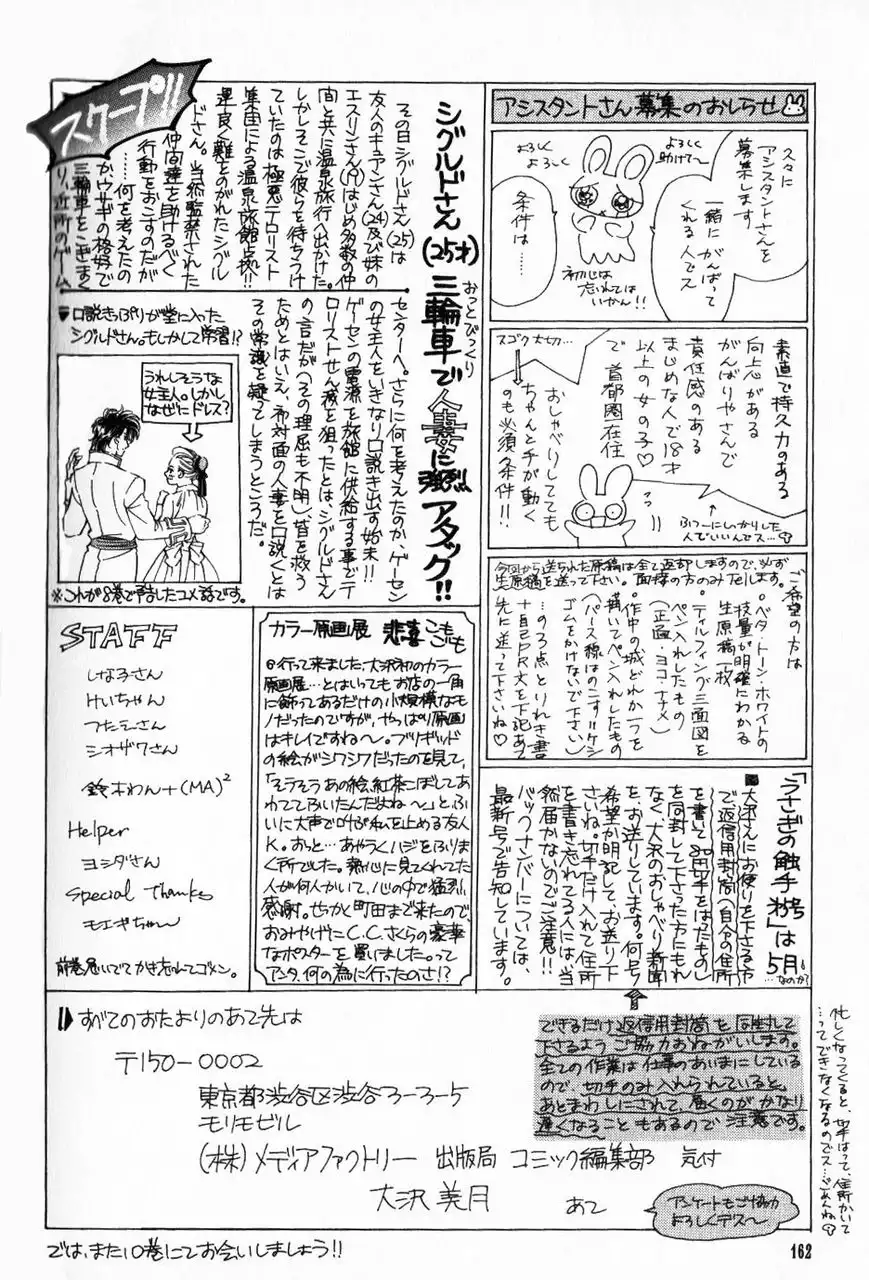 アシスタントさん募集のおしらせ
久々に
アシスタントさんを
募集します
一緒に がんばって
くれる人でス
よろしく
助けて〜
よろしく
よろしく
条件は……
初心は
忘れては
いかん!!
素直で持久力のある
向上心がある
がんばりやさんで
責任感のある
まじめな人で18才
以上の女の子♡
で 首都圏在住
スゴク大切…
おしゃべりしてても
ちゃんと手が動く
のも必須条件!!
ふつーにしっかりした
人でいいんでス…
今回から送られた原稿は全て返却しますので、必ず
生原稿を送って下さい。面接の方のみTelします。
ご希望の方は
・ベタ・トーン・ホワイトの
技量が明確にわかる
生原稿一枚
・ティルフィング三面図を
ペン入れしたもの
(正面・ヨコ・ナナメ)
・作中の城どれか一つを
描いてペン入れしたもの
(パース線はのこす!!ケシ
ゴムをかけないで下さい)
…の3点とりれき書
+自己PR文を下記あて
先に送って下さいね♡
スクープ!!
シグルドさん(25才)三輪車で人妻に強烈アタック!!
おっとびっくり
その日シグルドさん(25)は
友人のキュアンさん(24)及び妹の
エスリンさん(19)はじめ多数の仲
間と共に温泉旅行へ出かけた。
しかしそこで彼らを待ちうけ
ていたのは極悪テロリスト
集団による温泉旅館占拠!!
運良く難をのがれたシグル
ドさん。当然監禁された
仲間達を助けるべく
行動をおこすのだが
……何を考えたの
かウサギの格好で
三輪車をこぎまく
り、近所のゲーム
センターへ。さらに何を考えたのか、ゲーセン
の女主人をいきなり口説き出す始末!!
ゲーセンの電源を旅館に供給する事でテ
ロリストせん滅を狙ったとは、シグルドさん
の言だが(その理屈も不明)、皆を救う
ためとはいえ、初対面の人妻を口説くとは
その常識を疑ってしまうところだ。
▼口説きっぷりが堂に入った
シグルドさん。もしかして学習!?
うれしそうな
女主人。しかし
なぜにドレス?
※これが8巻で予告したコメ話です。
STAFF
しなみさん
けいちゃん
つたえさん
シオザワさん
鈴木わん+(MA)²
Helper
ヨシダさん
Special Thanks
モエギちゃん
前巻急いでてかき忘れてゴメン。
カラー原画展 悲喜こもごも
◎行って来ました。大沢初のカラー
原画展…とはいってもお店の一角
に飾ってあるだけの小規模なモ
ノだったのですが、やっぱり原画
はキレイですね〜。ブリギッド
の絵がシワシワだったのを見て、
「そうそうあの絵、紅茶こぼしてあ
わててふいたんだよね〜」とふ
いに大声で叫ぶ私を止める友人
K。おっと…あやうくハジをふりま
く所でした。熱心に見てくれてた
人が何人かいて、心の中で猛烈
感謝。せっかく町田まで来たので、
おみやげにC.C.さくらの豪華
なポスターを買いました。って
アンタ、何の為に行ったのさ!?
「うさぎの触手 秋号」は5月
…なのか?
■大沢さんにお便りを下さる方
で、返信用封筒(自分の住所
を書いて80円切手をはったもの)
を同封して下さった方にもれ
なく大沢のおしゃべり新聞
を、お送りしています。何号
希望か明記して、お送り下
さいね。切手だけ入れて住所
を書き忘れてる人には、当
然届かないのでご注意!!
バックナンバーについては、
最新号で告知しています。
できるだけ返信用封筒を同封して
下さるようご協力おねがいします。
全ての作業は仕事のあいまにしている
ので、切手のみ入れられていると、
あとまわしにされて、届くのがかなり
遅くなることもあるので注意です。
忙しくなってくると、切手はって、住所かいて
…ってできなくなるのでス…ごめんね
すべてのおたよりのあて先は
〒150-0002
東京都渋谷区渋谷3-3-5
モリモビル
(株)メディアファクトリー 出版局 コミック編集部 気付
大沢美月 あて
アンケートもご協力
よろしくデス〜
では、また10巻にてお会いしましょう!!
162